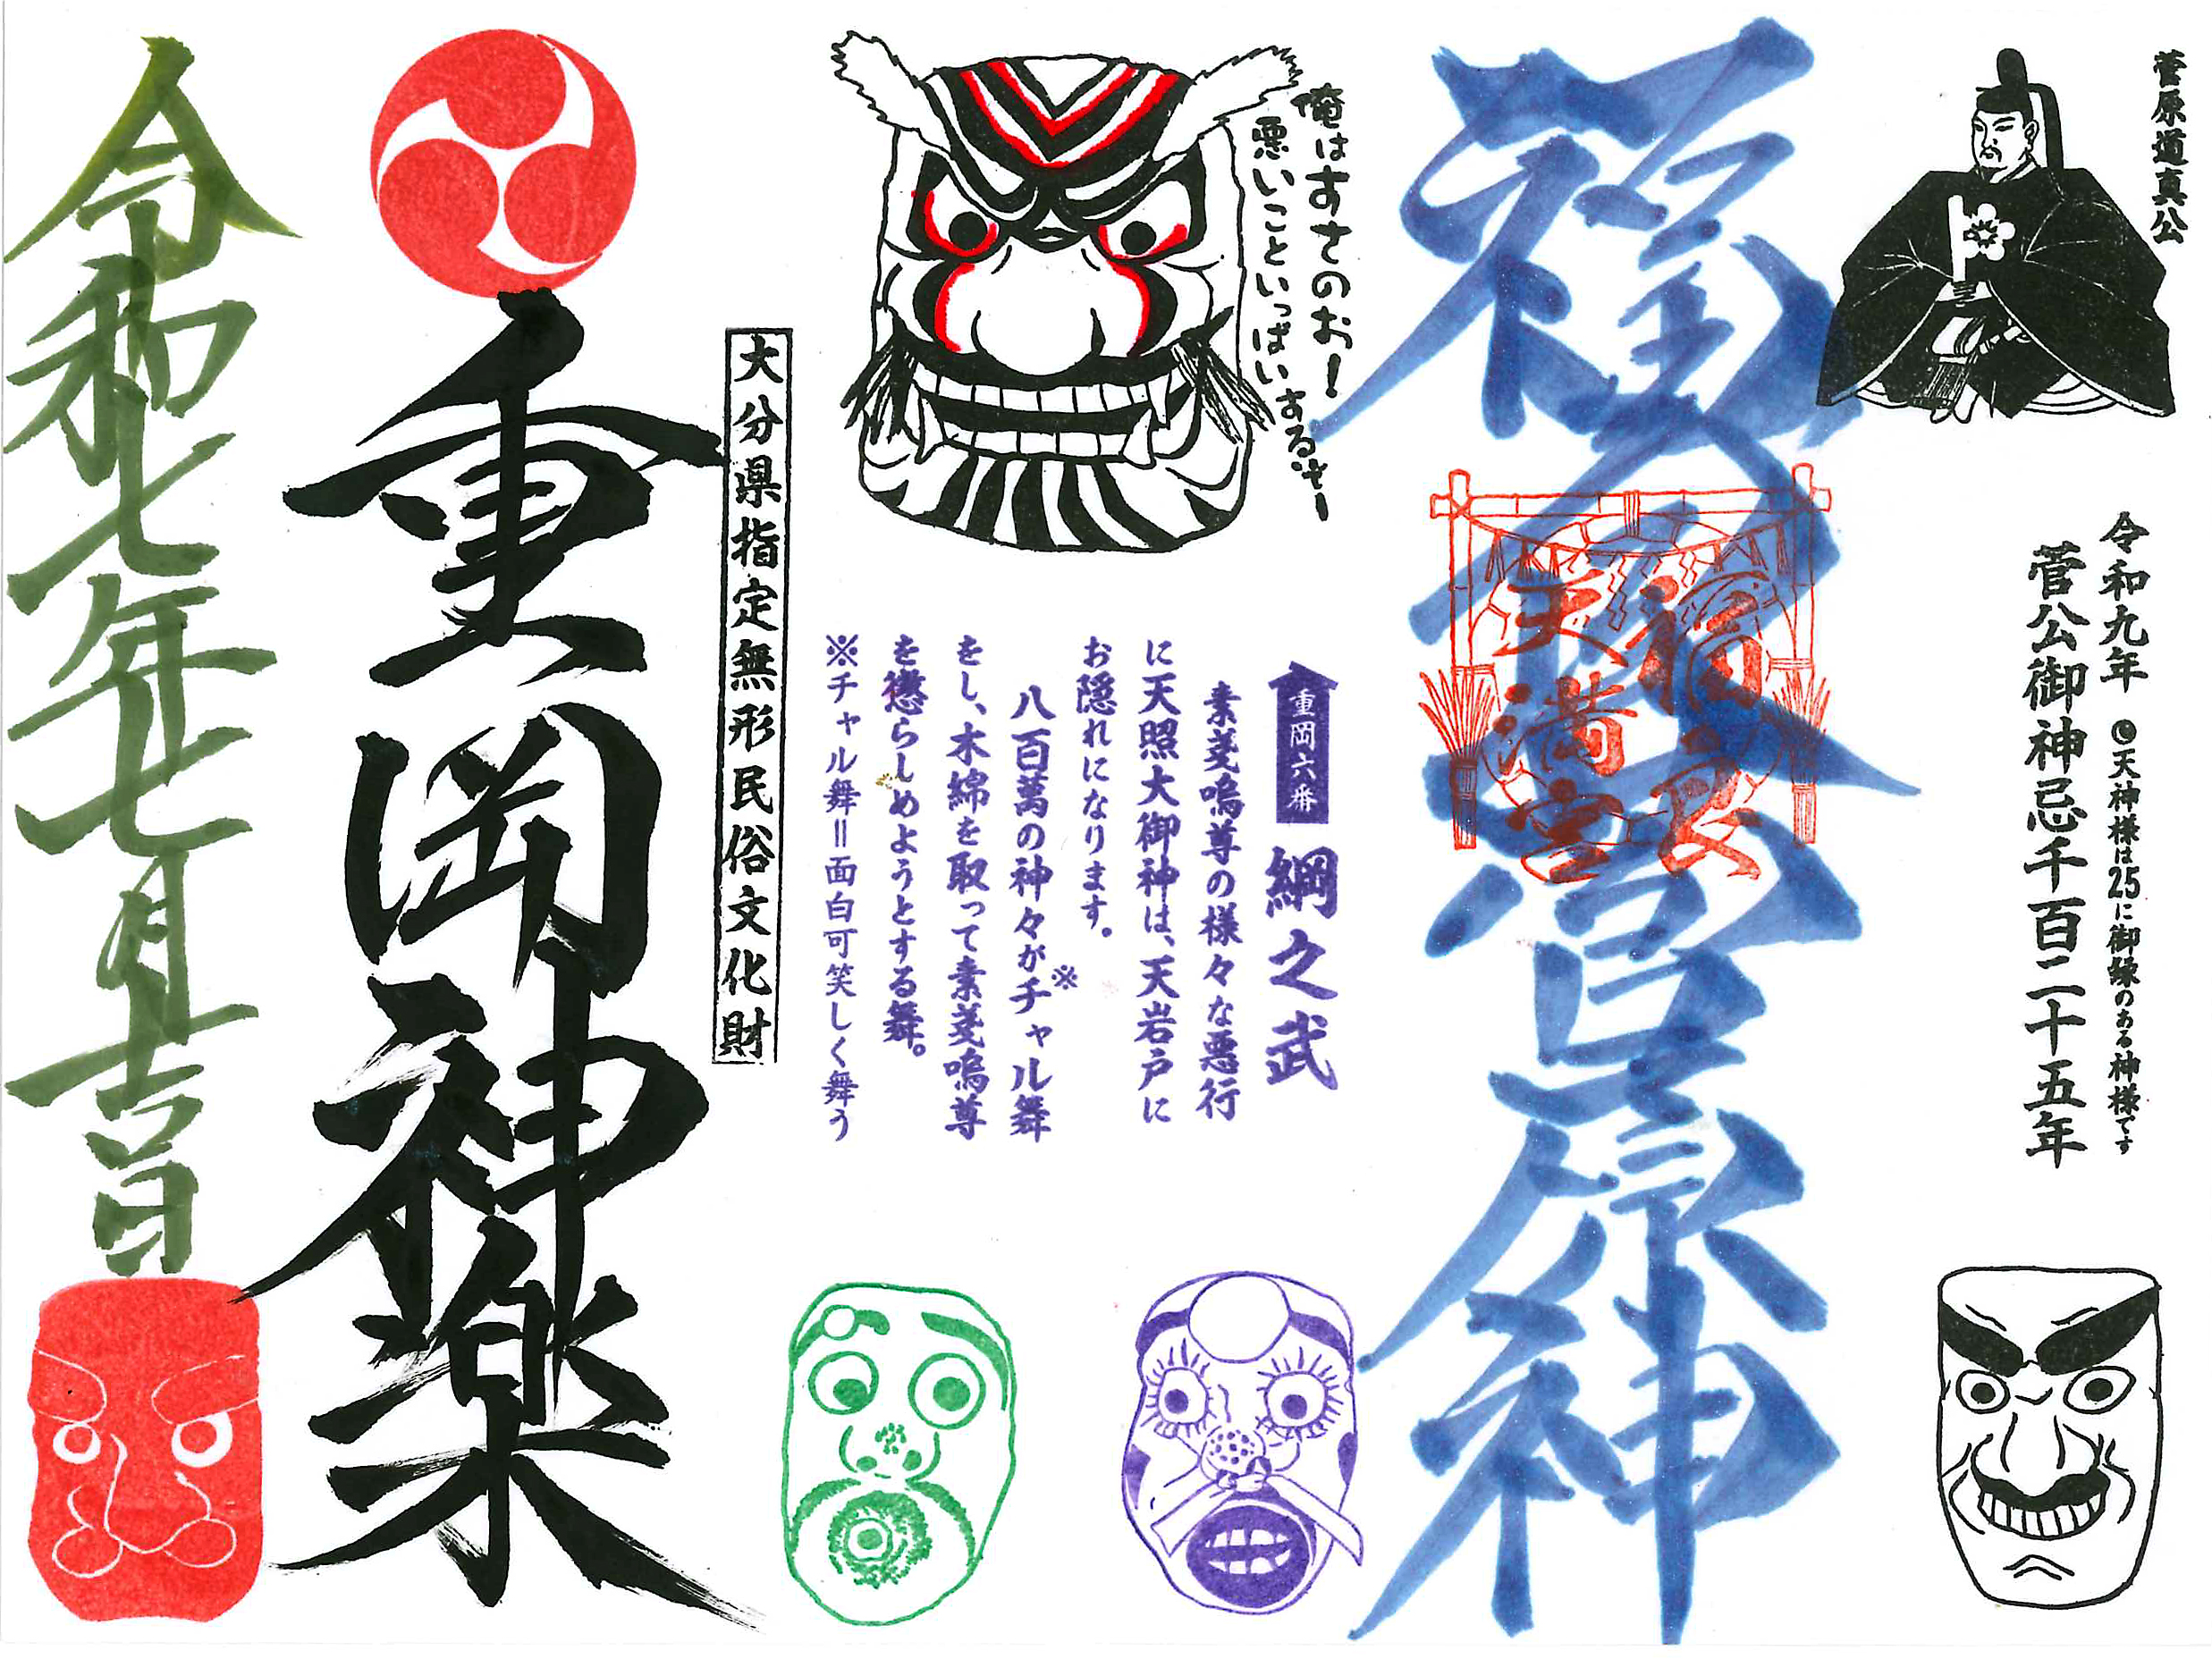 菅原道真公
令和九年 ☾天神様は25に御縁のある神様です
菅公御神忌千百二十五年
福良菅原神
福良
天満宮
俺はすさのお!
悪いこといっぱいするさー
重岡六番 綱之武
素戔嗚尊の様々な悪行
に天照大御神は、天岩戸に
お隠れになります。
八百萬の神々がチャル舞※
をし、木綿を取って素戔嗚尊
を懲らしめようとする舞。
※チャル舞=面白可笑しく舞う
大分県指定無形民俗文化財
重岡神楽
令和七年七月吉日